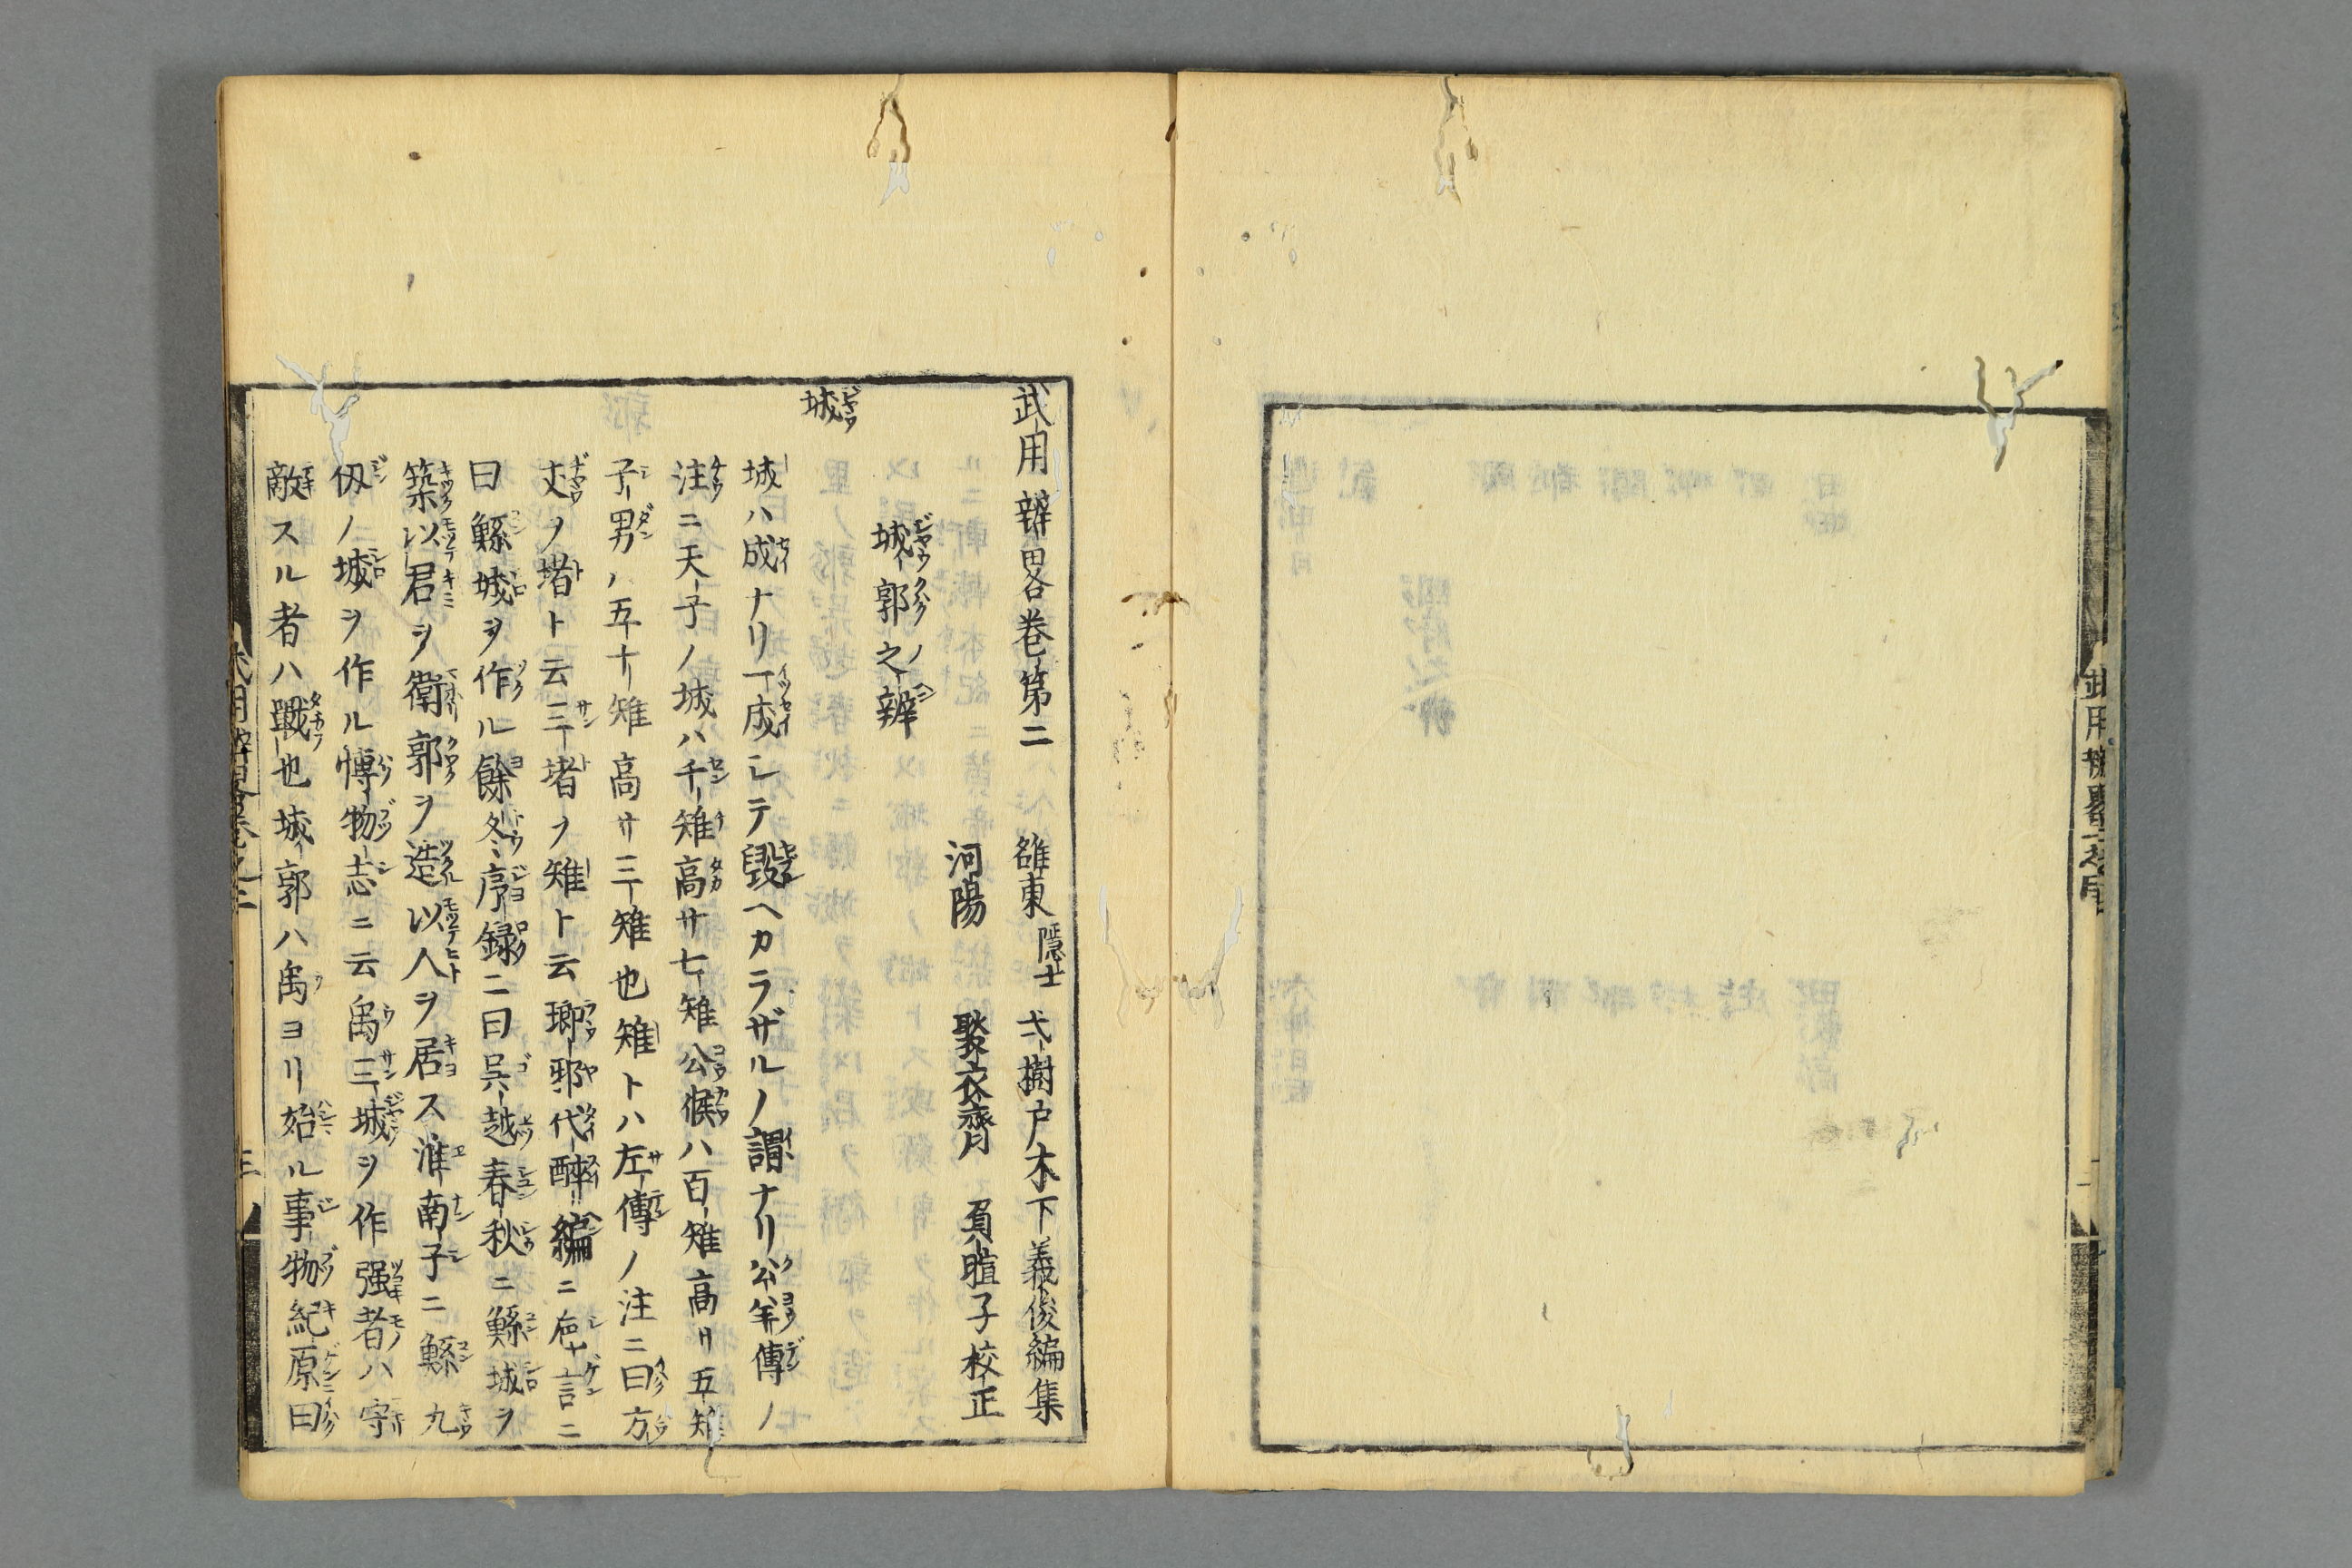 武用辨畧巻之
武用辨畧巻第二
雒東隱士 弌樹戸木下義俊編集
河陽 聚衣齊 頁暄子校正
城郭之辨
城
城ハ成ナリ一成シテ毀ヘカラザルノ謂ナリ公羊傳ノ
注ニ天子ノ城ハ千雉高サ七雉公侯ハ百雉高サ五雉
子男ハ五十雉高サ三雉也雉トハ左傳ノ注ニ曰方
丈ノ堵ト云三堵ヲ雉ト云瑯邪代醉編ニ巵言ニ
曰鯀城ヲ作ル餘冬序録ニ曰呉越春秋ニ鯀城ヲ
築以君ヲ衛郭ヲ造以人ヲ居ス淮南子ニ鯀九
仭ノ城ヲ作ル博物志ニ云禹三城ヲ作强者ハ守
敵スル者ハ戰也城郭ハ禹ヨリ始ル事物紀原曰
武用辨畧巻之二